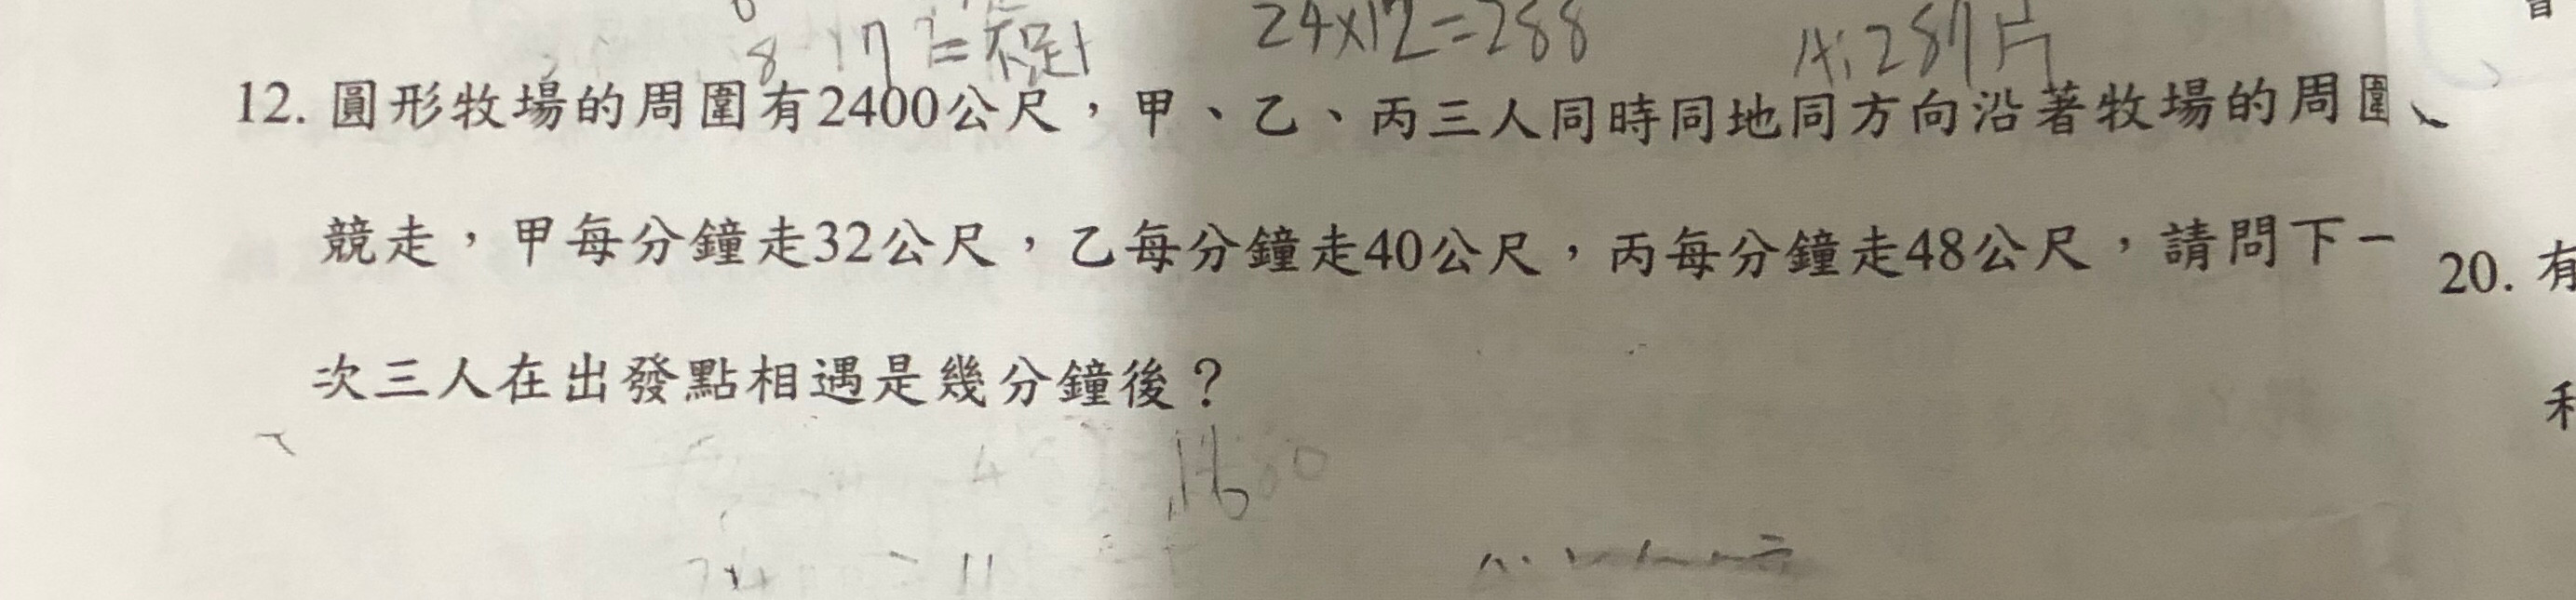 8 17 = 不足1
24×12=288
A:287片
12. 圓形牧場的周圍有2400公尺，甲、乙、丙三人同時同地同方向沿著牧場的周圍
競走，甲每分鐘走32公尺，乙每分鐘走40公尺，丙每分鐘走48公尺，請問下一
次三人在出發點相遇是幾分鐘後？
20. 有